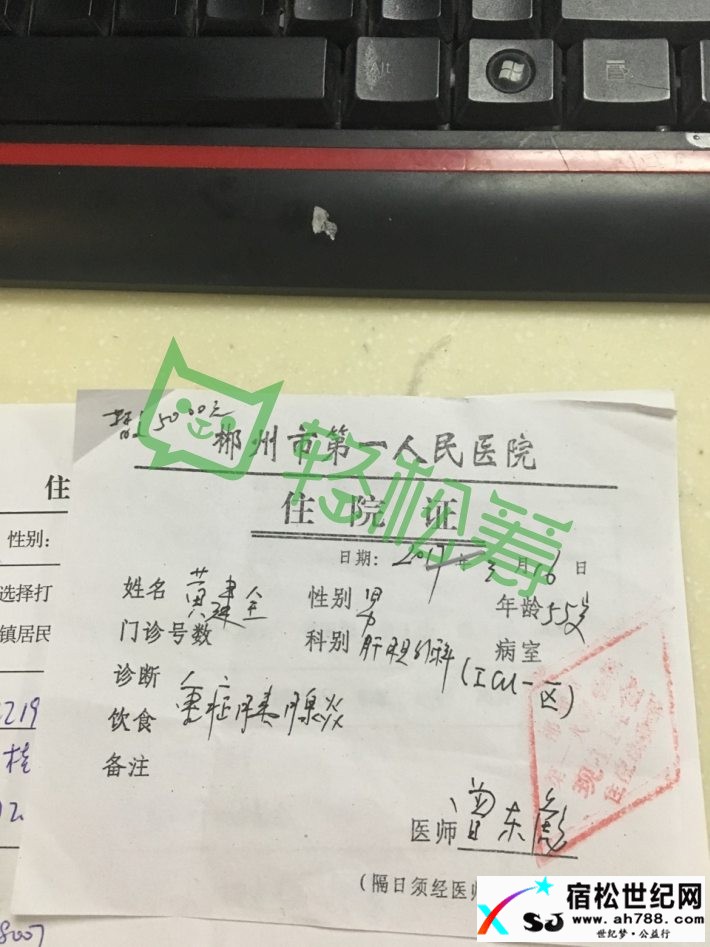 Alt
暂5000元
郴州市第一人民医院
轻松筹
住院证
日期: 2017年3月16日
姓名 黄建全 性别 男 年龄 55岁
门诊号数 科别 肝胆外科 病室 (ICU一区)
诊断 重症胰腺炎
饮食
备注
医师 曾东彪
(隔日须经医师
住
性别:
选择打
镇居民
219
桂
8007
宿松世纪网
XSJ www.ah788.com
世纪梦·公益行